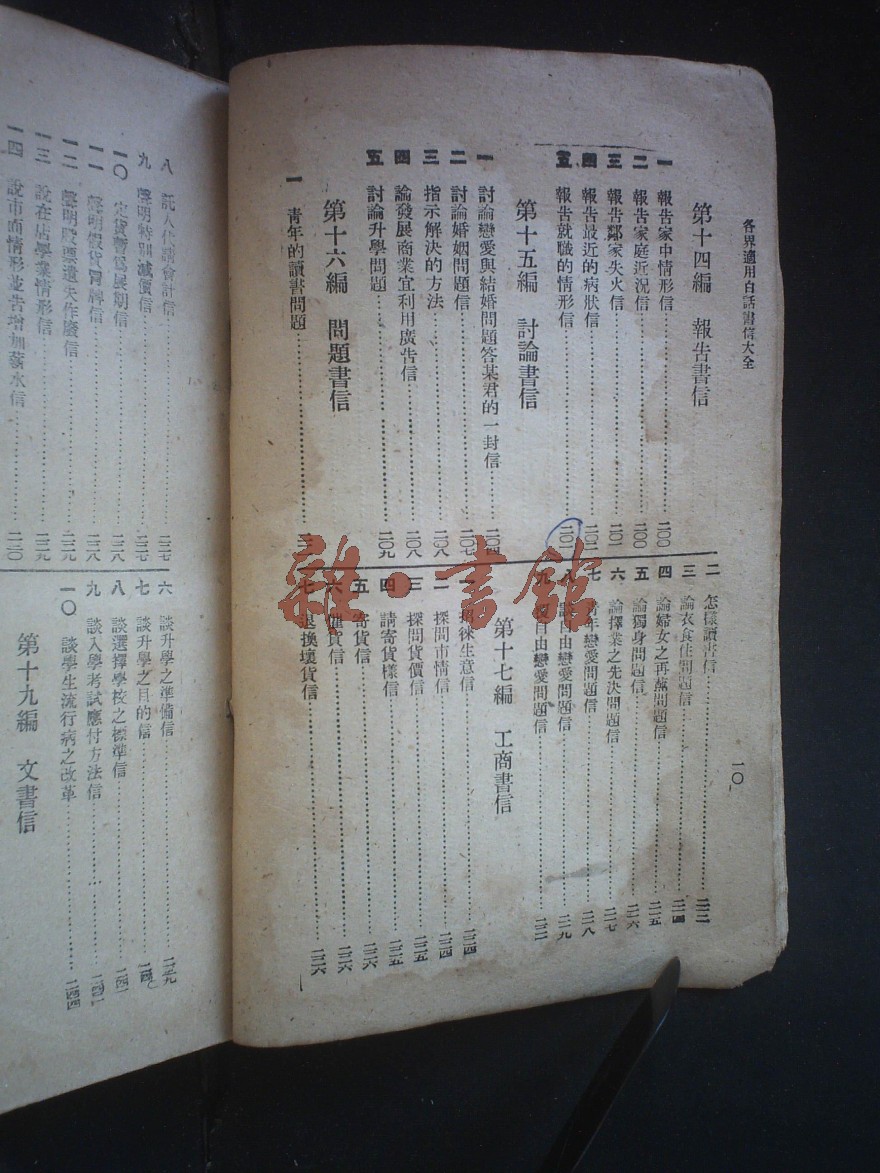 各界適用白話書信大全
一〇
第十四編 報告書信
一 報告家中情形信 二〇〇
二 報告家庭近況信 二〇〇
三 報告鄰家失火信 二〇一
四 報告最近的病狀信 二〇二
五 報告就職的情形信 二〇二
第十五編 討論書信
一 討論戀愛與結婚問題答某君的一封信 二〇四
二 討論婚姻問題信 二〇七
三 指示解決的方法 二〇八
四 論發展商業宜利用廣告信 二〇八
五 討論升學問題 二〇九
第十六編 問題書信
一 青年的讀書問題
二 怎樣讀書信 二一二
三 論衣食住問題信 二一四
四 論婦女之再蘸問題信 二一五
五 論獨身問題信 二一六
六 論擇業之先決問題信 二一七
七 青年戀愛問題信 二一八
八 論自由戀愛問題信 二一九
九 自由戀愛問題信 二二一
第十七編 工商書信
一 招徠生意信 二二四
二 探問市情信 二二四
三 探問貨價信 二二五
四 請寄貨樣信 二二五
五 寄貨信 二二六
六 匯貨信 二二六
七 退換壞貨信 二二六
八 託人代請會計信 二三七
九 聲明特別減價信 二三七
一〇 定貨暫爲展期信 二三八
一一 聲明假貨冒牌信 二三八
一二 聲明股票遺失作廢信 二三九
一三 設在店學業情形信 二三九
一四 設市面情形並告增加薪水信 二三〇
六 談升學之準備信 二三九
七 談升學之目的信 二四〇
八 談選擇學校之標準信 二四一
九 談入學考試應付方法信 二四二
一〇 談學生流行病之改革 二四四
第十九編 文書信
雜·書館